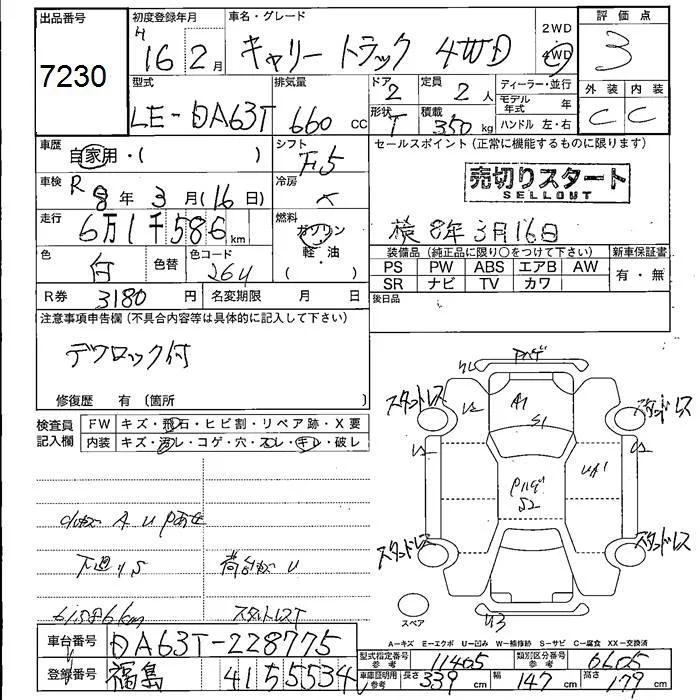 出品番号 7230
初度登録年月 H 16 2月
車名・グレード キャリートラック 4WD
2WD 4WD
評価点 3
外装 内装
C C
型式 LE-DA63T
排気量 660 cc
ドア 2 形状 T
定員 2人 積載 350 kg
ディーラー・並行
モデル年式 年
ハンドル 左・右
車歴 自家用・( )
シフト F5
セールスポイント(正常に機能するものに限ります)
売切りスタート
SELLOUT
車検 R 8年 3月(16日)
冷房 ×
走行 6万1千586 km
燃料 ガソリン 軽・油 ( )
検 8年3月16日
色 白 色替 色コード 26U
装備品(純正品に限り○をつけて下さい) 新車保証書
PS PW ABS エアB AW 有・無
SR ナビ TV カワ
R券 3180円 名変期限 月 日
後日品
注意事項申告欄(不具合内容等は具体的に記入して下さい)
デフロック付
修復歴 有 (箇所
検査員記入欄
FW キズ・飛石・ヒビ割・リペア跡・X要
内装 キズ・汚レ・コゲ・穴・スレ・キレ・破レ
A U P
下廻りS
荷台 U
61586km
スタットレスT
スタットレス
スタットレス
スタットレス
スタットレス
A1
S1
U2
U2
UA1
S2
U3
スペア
A-キズ E-エクボ U-凹み W-補修跡 S-サビ C-腐食 XX-交換済
車台番号 DA63T-228775
登録番号 福島 41 5 5534
型式指定番号 参考 11405 類別区分番号 参考 6605
車庫証明用 参考 長さ 339 cm 幅 147 cm 高さ 179 cm